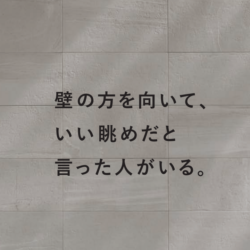 壁の方を向いて、
いい眺めだと
言った人がいる。